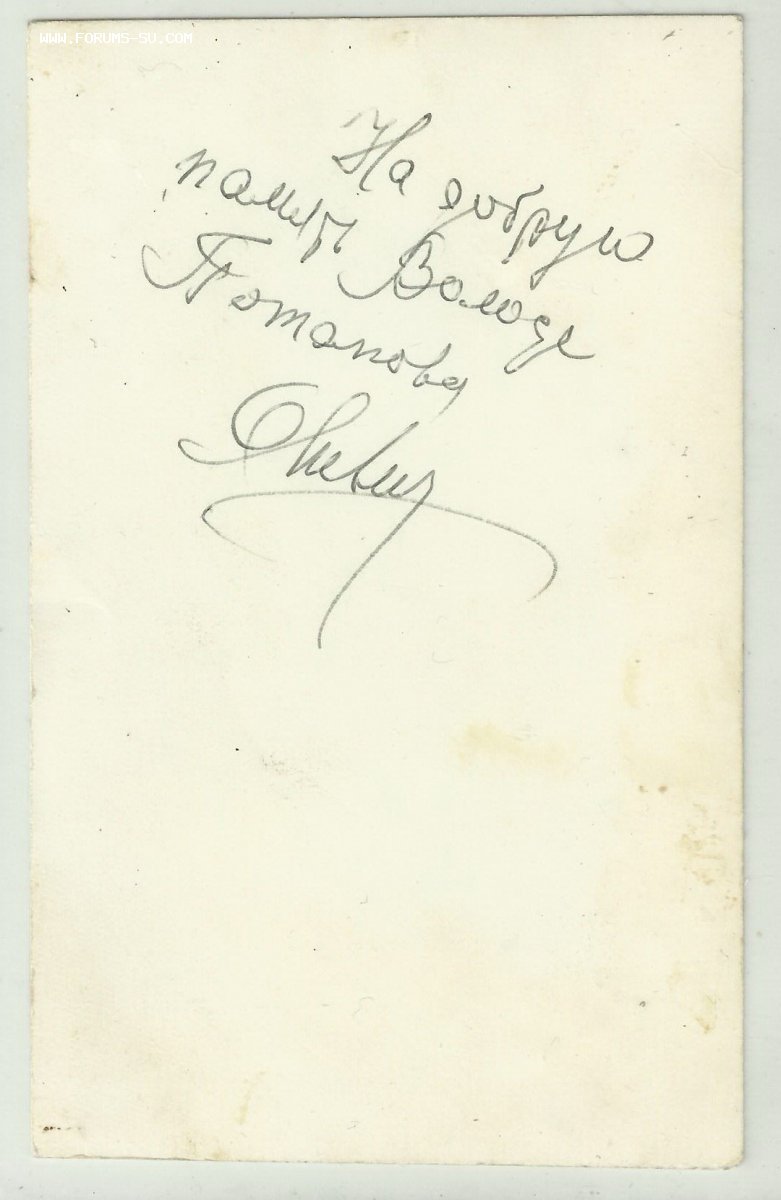 WWW.FORUMS-SU.COM
На добрую
память Володе
Потапову